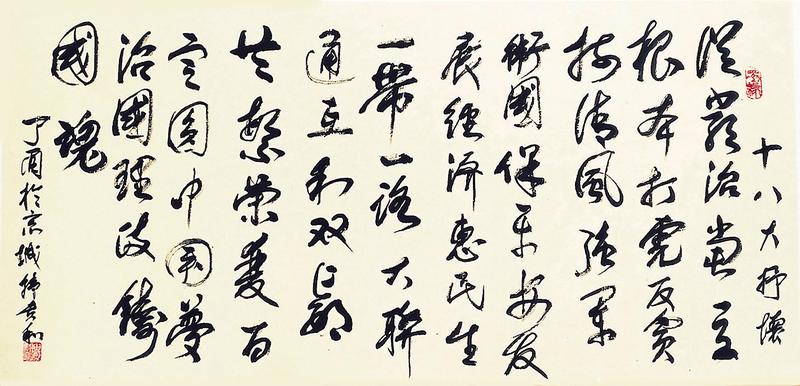 十八大抒懷
從嚴治黨立
根本打虎反貪
揚清風強軍
衛國保平安发
展經濟惠民生
一帶一路大聯
通互利双贏
共繁荣百
圓中國夢
治國理政鑄
國魂
丁酉於京城